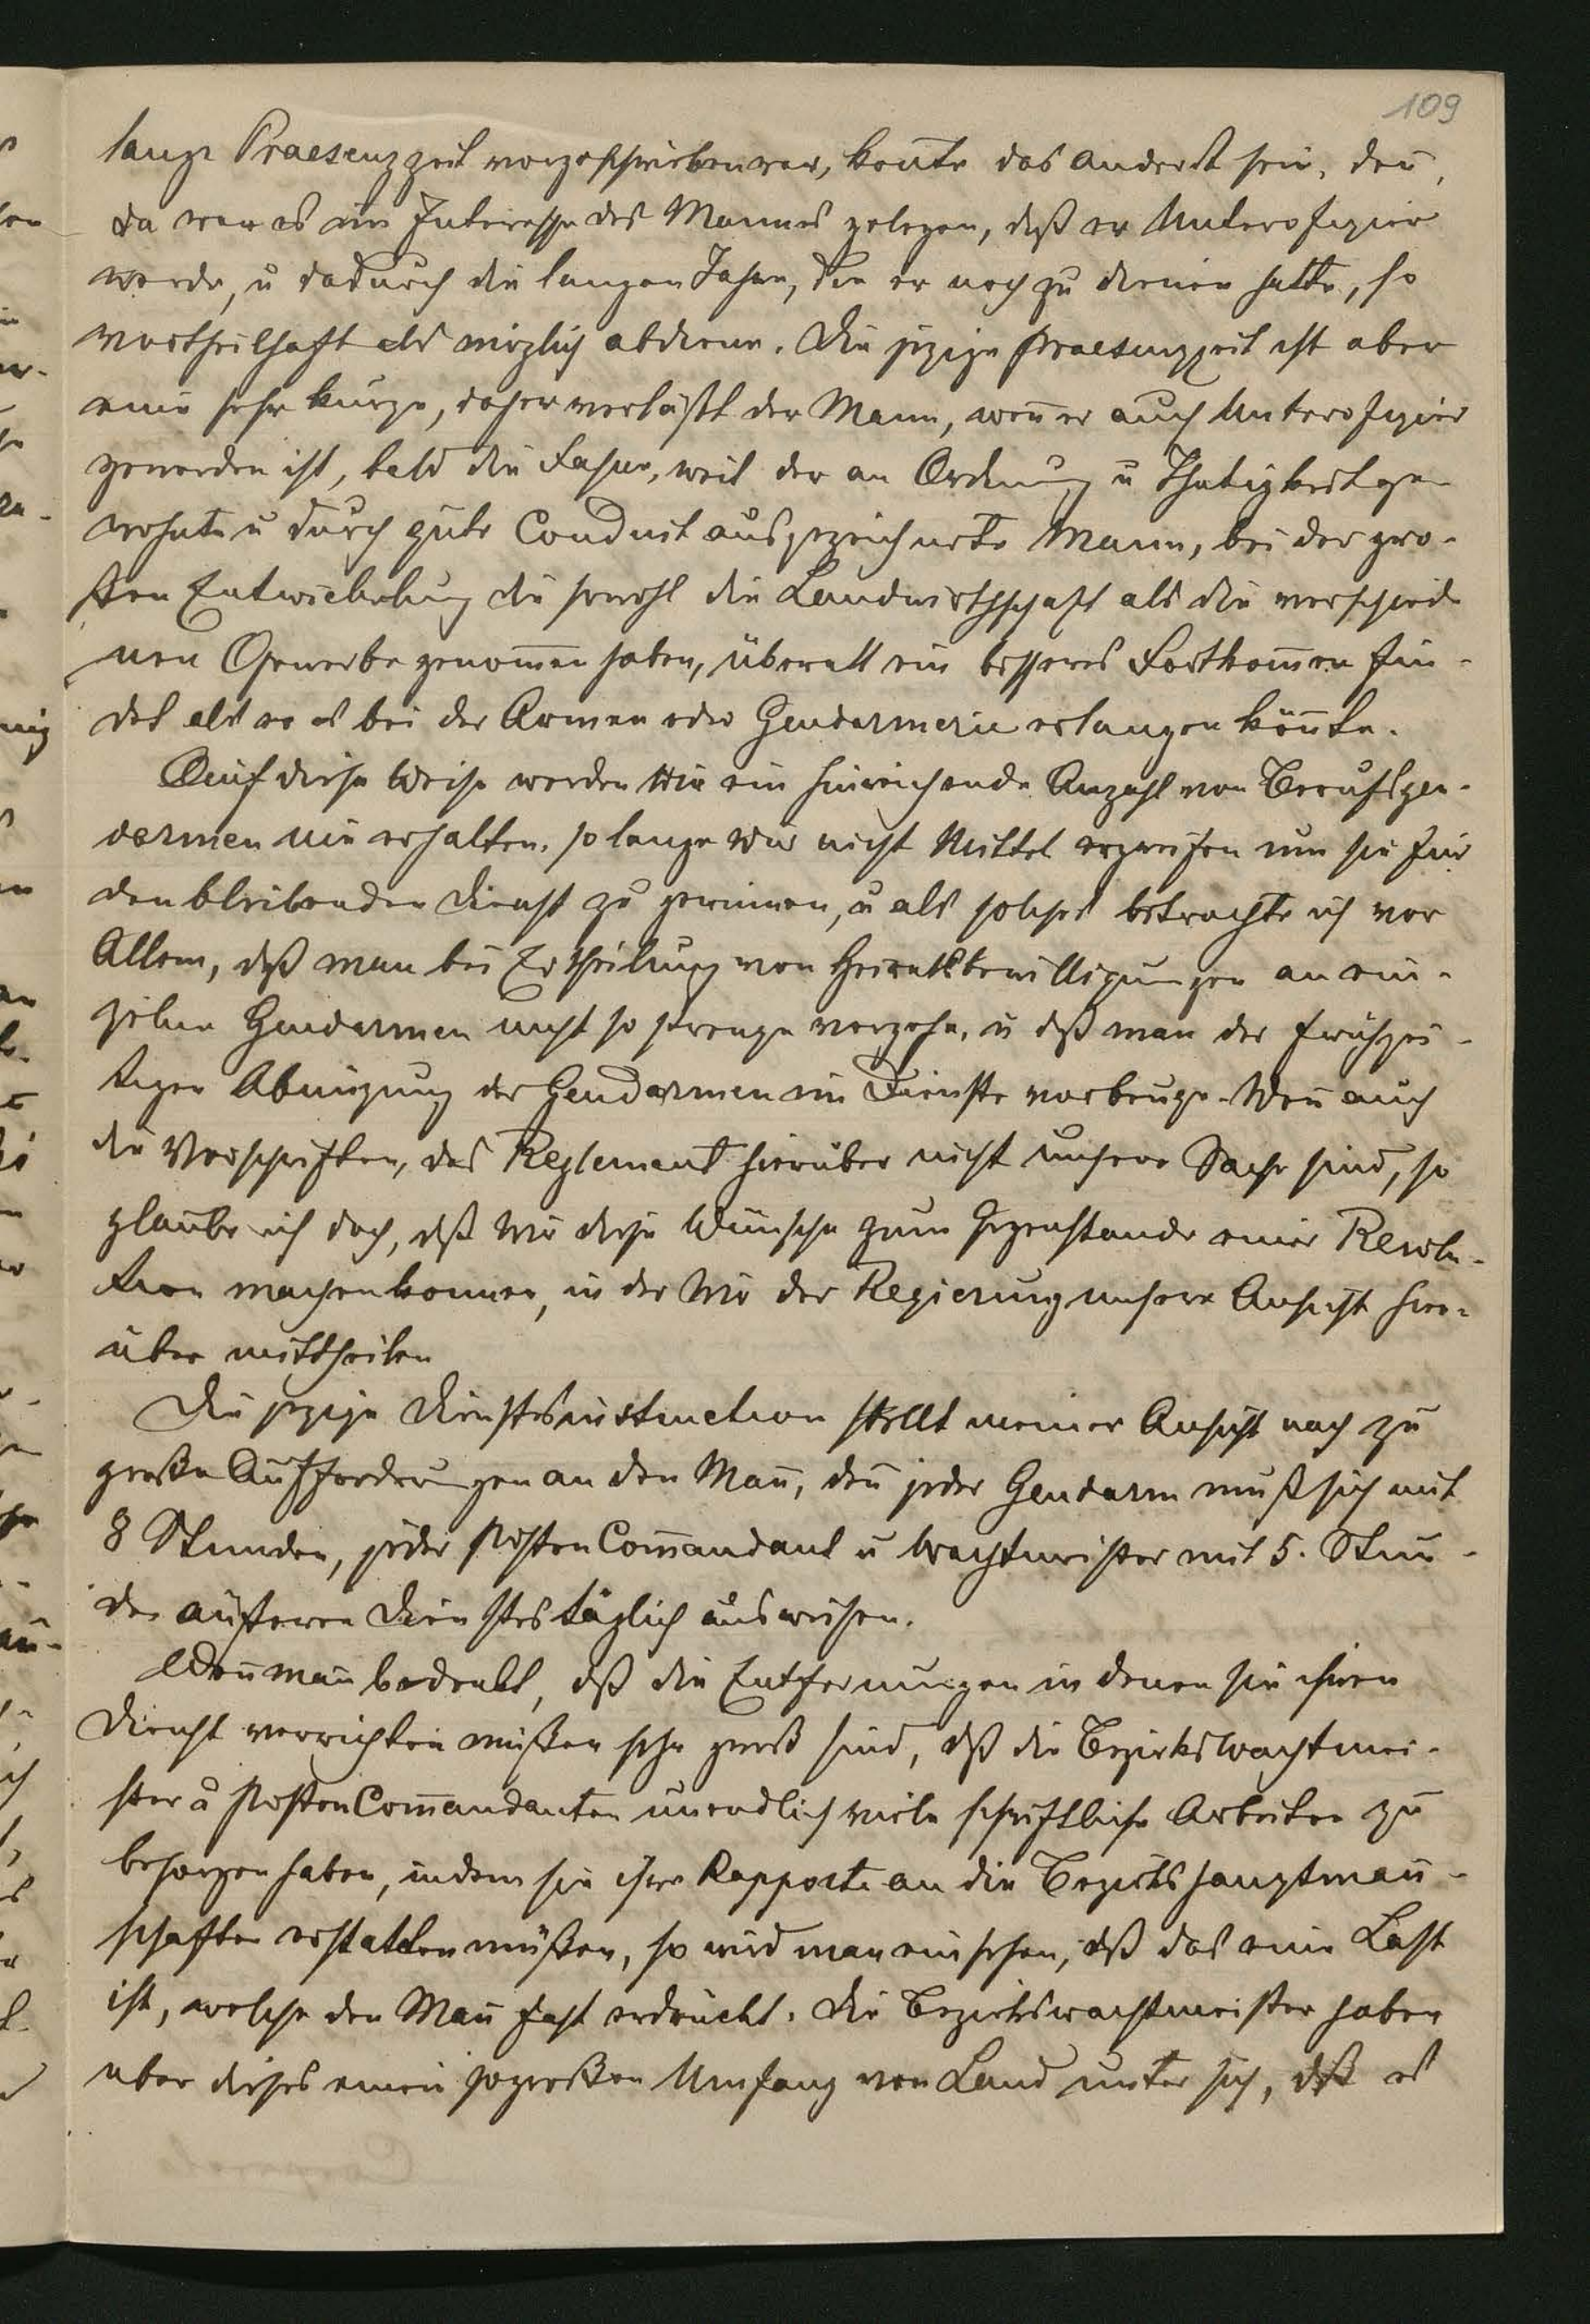 109
lange Praesenzzeit vorgeschrieben war, konnte das anderst sein, den̄
da war es im Interesse des Mannes gelegen, daß er Unterofizier
werde, u dadurch die langen Jahre, die er noch zu dienen hatte, so
vortheilhaft als möglich abdiene. Die jezige Praesenzzeit ist aber
eine sehr kurze, daher verläßt der Mann, wen̄ er auch Unterofizier
geworden ist, bald die Fahne, weil der an Ordnung u Thätigkeit ge-
wohnte u durch gute Conduit ausgezeichnete Mann, bei der gro-
ßen Entwickelung die sowohl die Landwirthschaft als die verschiede
nen Gewerbe genom̄en haben, überall ein besseres Fortkom̄en fin-
det als er es bei der Armee oder Gendarmerie erlangen kön̄te.
Auf diese Weise werden wir ein hinreichende Anzahl von Berufsgen-
darmen nie erhalten, so lange wir nicht Mittel ergreifen um sie für
den bleibenden Dienst zu gewinnen, u als solches betrachte ich vor
Allem, daß man bei Ertheilung von Heiratsbewilligungen an ein-
zelne Gendarmen nicht so strenge vorgehe, u daß man der frühzei-
tigen Abnüzung der Gendarmen im Dienste vorbeuge. Wen̄ auch
die Vorschriften, das Reglement hierüber nicht unsere Sache sind, so
glaube ich doch, daß wir diese Wünsche zum Gegenstande einer Resolu-
tion machen konnen, in der wir der Regierung unsere Ansicht hier-
über mittheilen
Die jezige Dienstesinstruction stellt meiner Ansicht nach zu
große Aufforderungen an den Man̄, den̄ jeder Gendarm muß sich mit
8 Stunden, jeder Posten Com̄andant u Wachtmeister mit 5. Stun-
den äußeren Dienstes täglich ausweisen.
Wen̄ man̄ bedenkt, daß die Entfernungen in denen sie ihren
Dienst verrichten müßen sehr groß sind, daß die Bezirkswachtmei-
ster u Posten Com̄andanten unendlich viele schriftliche Arbeiten zu
besorgen haben, indem sie ihre Rapporte an die Bezirkshauptman̄-
schaften erstatten müßen, so wird man einsehen, daß das eine Last
ist, welche den Man̄ fast erdrückt. Die Bezirkswachtmeister haben
über dieses einen so großen Umfang von Land unter sich, daß es